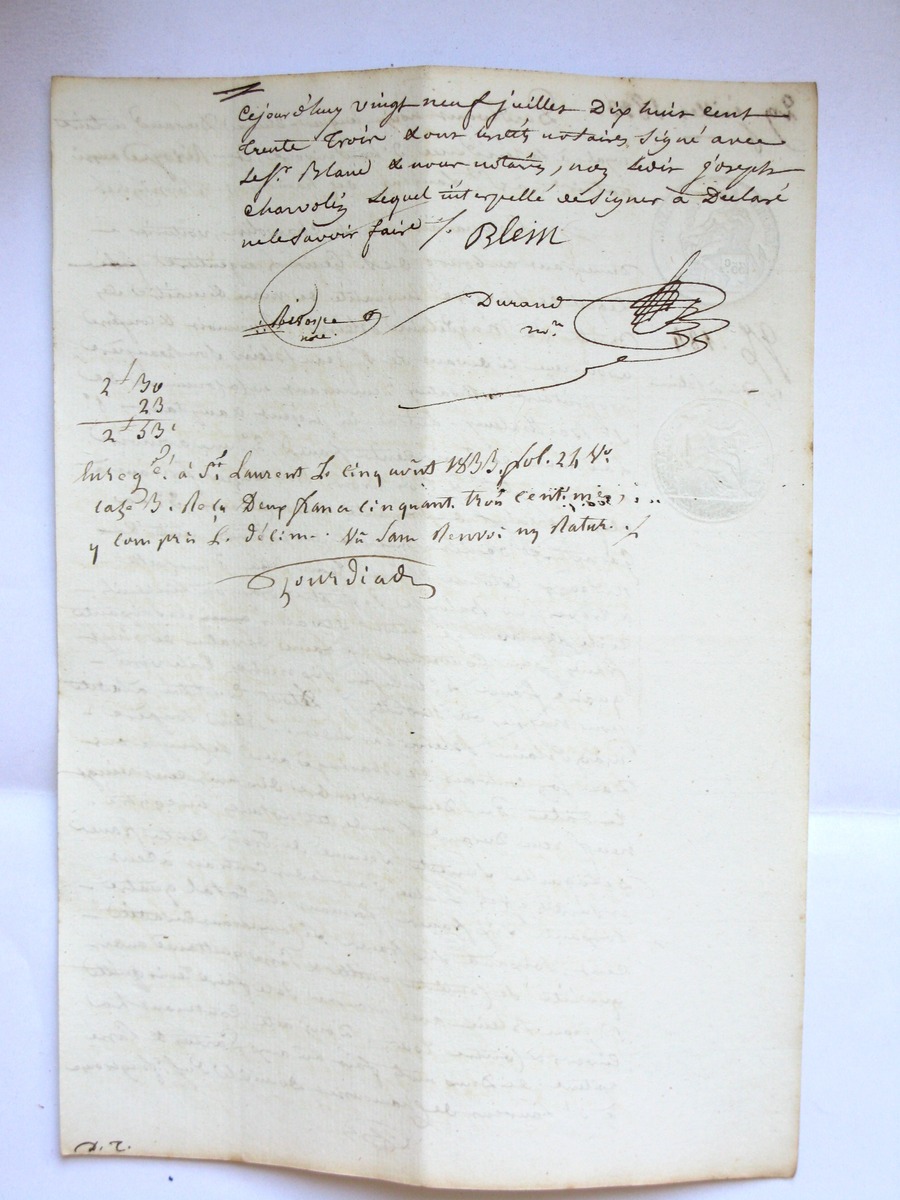 Cejourd'huy vingt neuf juillet Dix huit cent
trente trois & ont lesdits notaires signé avec
le Sr. Blanc & nous notaires, non ledit joseph
Charvolin lequel interpellé de signer a Declaré
ne le savoir faire /.
Blein
Durand
nore.
nre
2f 30
23
2f 53c
Enregé. à St. Laurent le cinq août 1833. fol. 24 Vo.
Case 3. Reçu Deux francs cinquante trois centimes
y compris le décime. Vu sans Renvoi ny Rature.
Jourdiad
D. T.